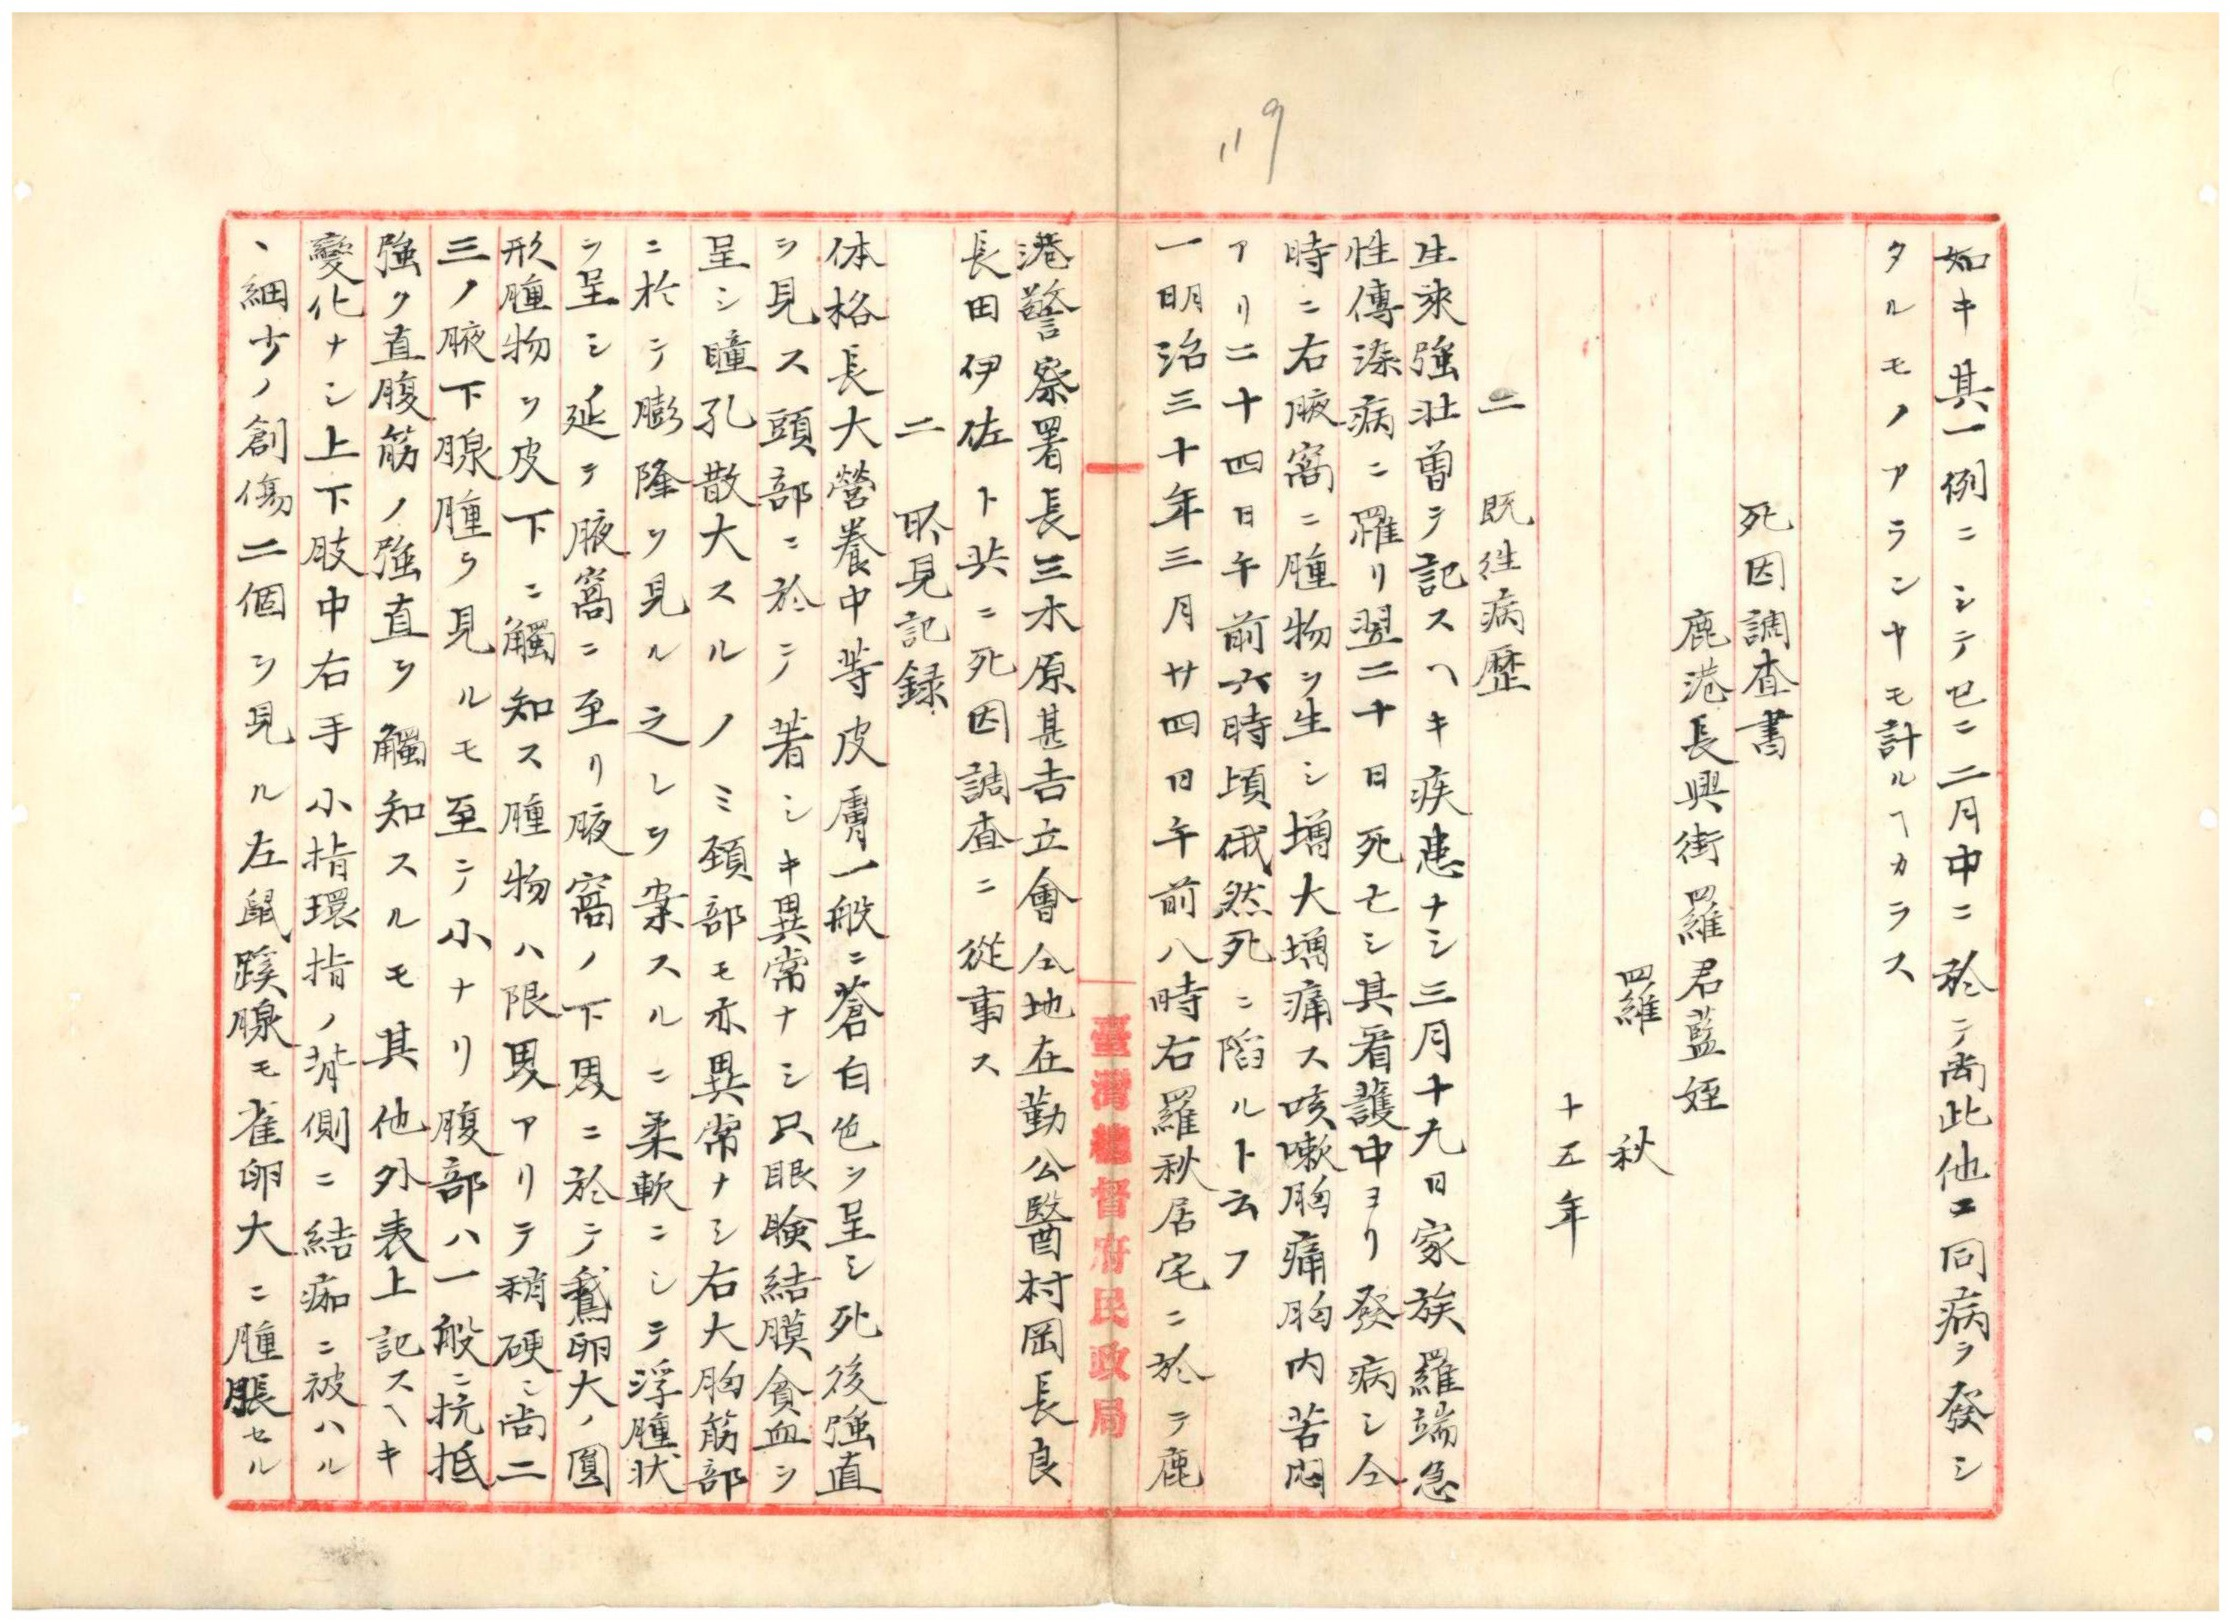 119
如キ其一例ニシテ已ニ二月中ニ於テ尚此他ニ同病ヲ發シ
タルモノアランヤモ計ルヘカラス
死因調査書
鹿港長興街羅君藍姪
羅 秋
十五年
一 既往病歴
生來強壮曽テ記スヘキ疾患ナシ三月十九日家族羅端急
性傳染病ニ羅リ翌二十日死亡シ其看護中ヨリ發病シ仝
時ニ右腋窩ニ腫物ヲ生シ増大増痛ス咳嗽胸痛胸内苦悶
アリ二十四日午前六時頃俄然死ニ陷ルト云フ
一明治三十年三月廿四日午前八時右羅秋居宅ニ於テ鹿
臺灣總督府民政局
港警察署長三木原甚吉立會仝地在勤公醫村岡長良
長田伊佐ト共ニ死因調査ニ從事ス
二 所見記録
体格長大營養中等皮膚一般ニ蒼白色ヲ呈シ死後強直
ヲ見ス頭部ニ於テ著シキ異常ナシ只眼瞼結膜貧血ヲ
呈シ瞳孔散大スルノミ頚部モ亦異常ナシ右大胸筋部
ニ於テ膨隆ヲ見ル之レヲ案スルニ柔軟ニシテ浮腫状
ヲ呈シ延テ腋窩ニ至リ腋窩ノ下界ニ於テ鵞卵大ノ圓
形腫物ヲ皮下ニ觸知ス腫物ハ限界アリテ稍硬シ尚二
三ノ腋下腺腫ヲ見ルモ至テ小ナリ腹部ハ一般ニ抗抵
強ク直腹筋ノ強直ヲ觸知スルモ其他外表上記スヘキ
變化ナシ上下肢中右手小指環指ノ背側ニ結痂ニ被ハル
、細少ノ創傷二個ヲ見ル左鼠蹊腺モ雀卵大ニ腫脹セル